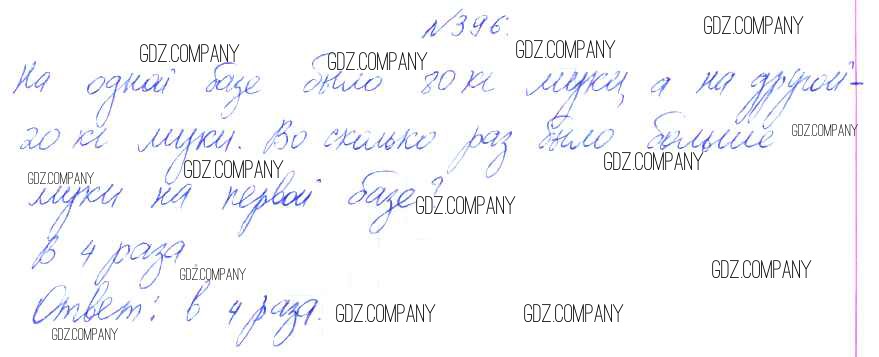 №396.
GDZ.COMPANY GDZ.COMPANY GDZ.COMPANY GDZ.COMPANY
На одной базе было 80 кг муки, а на другой -
20 кг муки. Во сколько раз было больше
GDZ.COMPANY GDZ.COMPANY GDZ.COMPANY GDZ.COMPANY
муки на первой базе?
GDZ.COMPANY
В 4 раза
GDZ.COMPANY GDZ.COMPANY
Ответ: в 4 раза.
GDZ.COMPANY GDZ.COMPANY GDZ.COMPANY